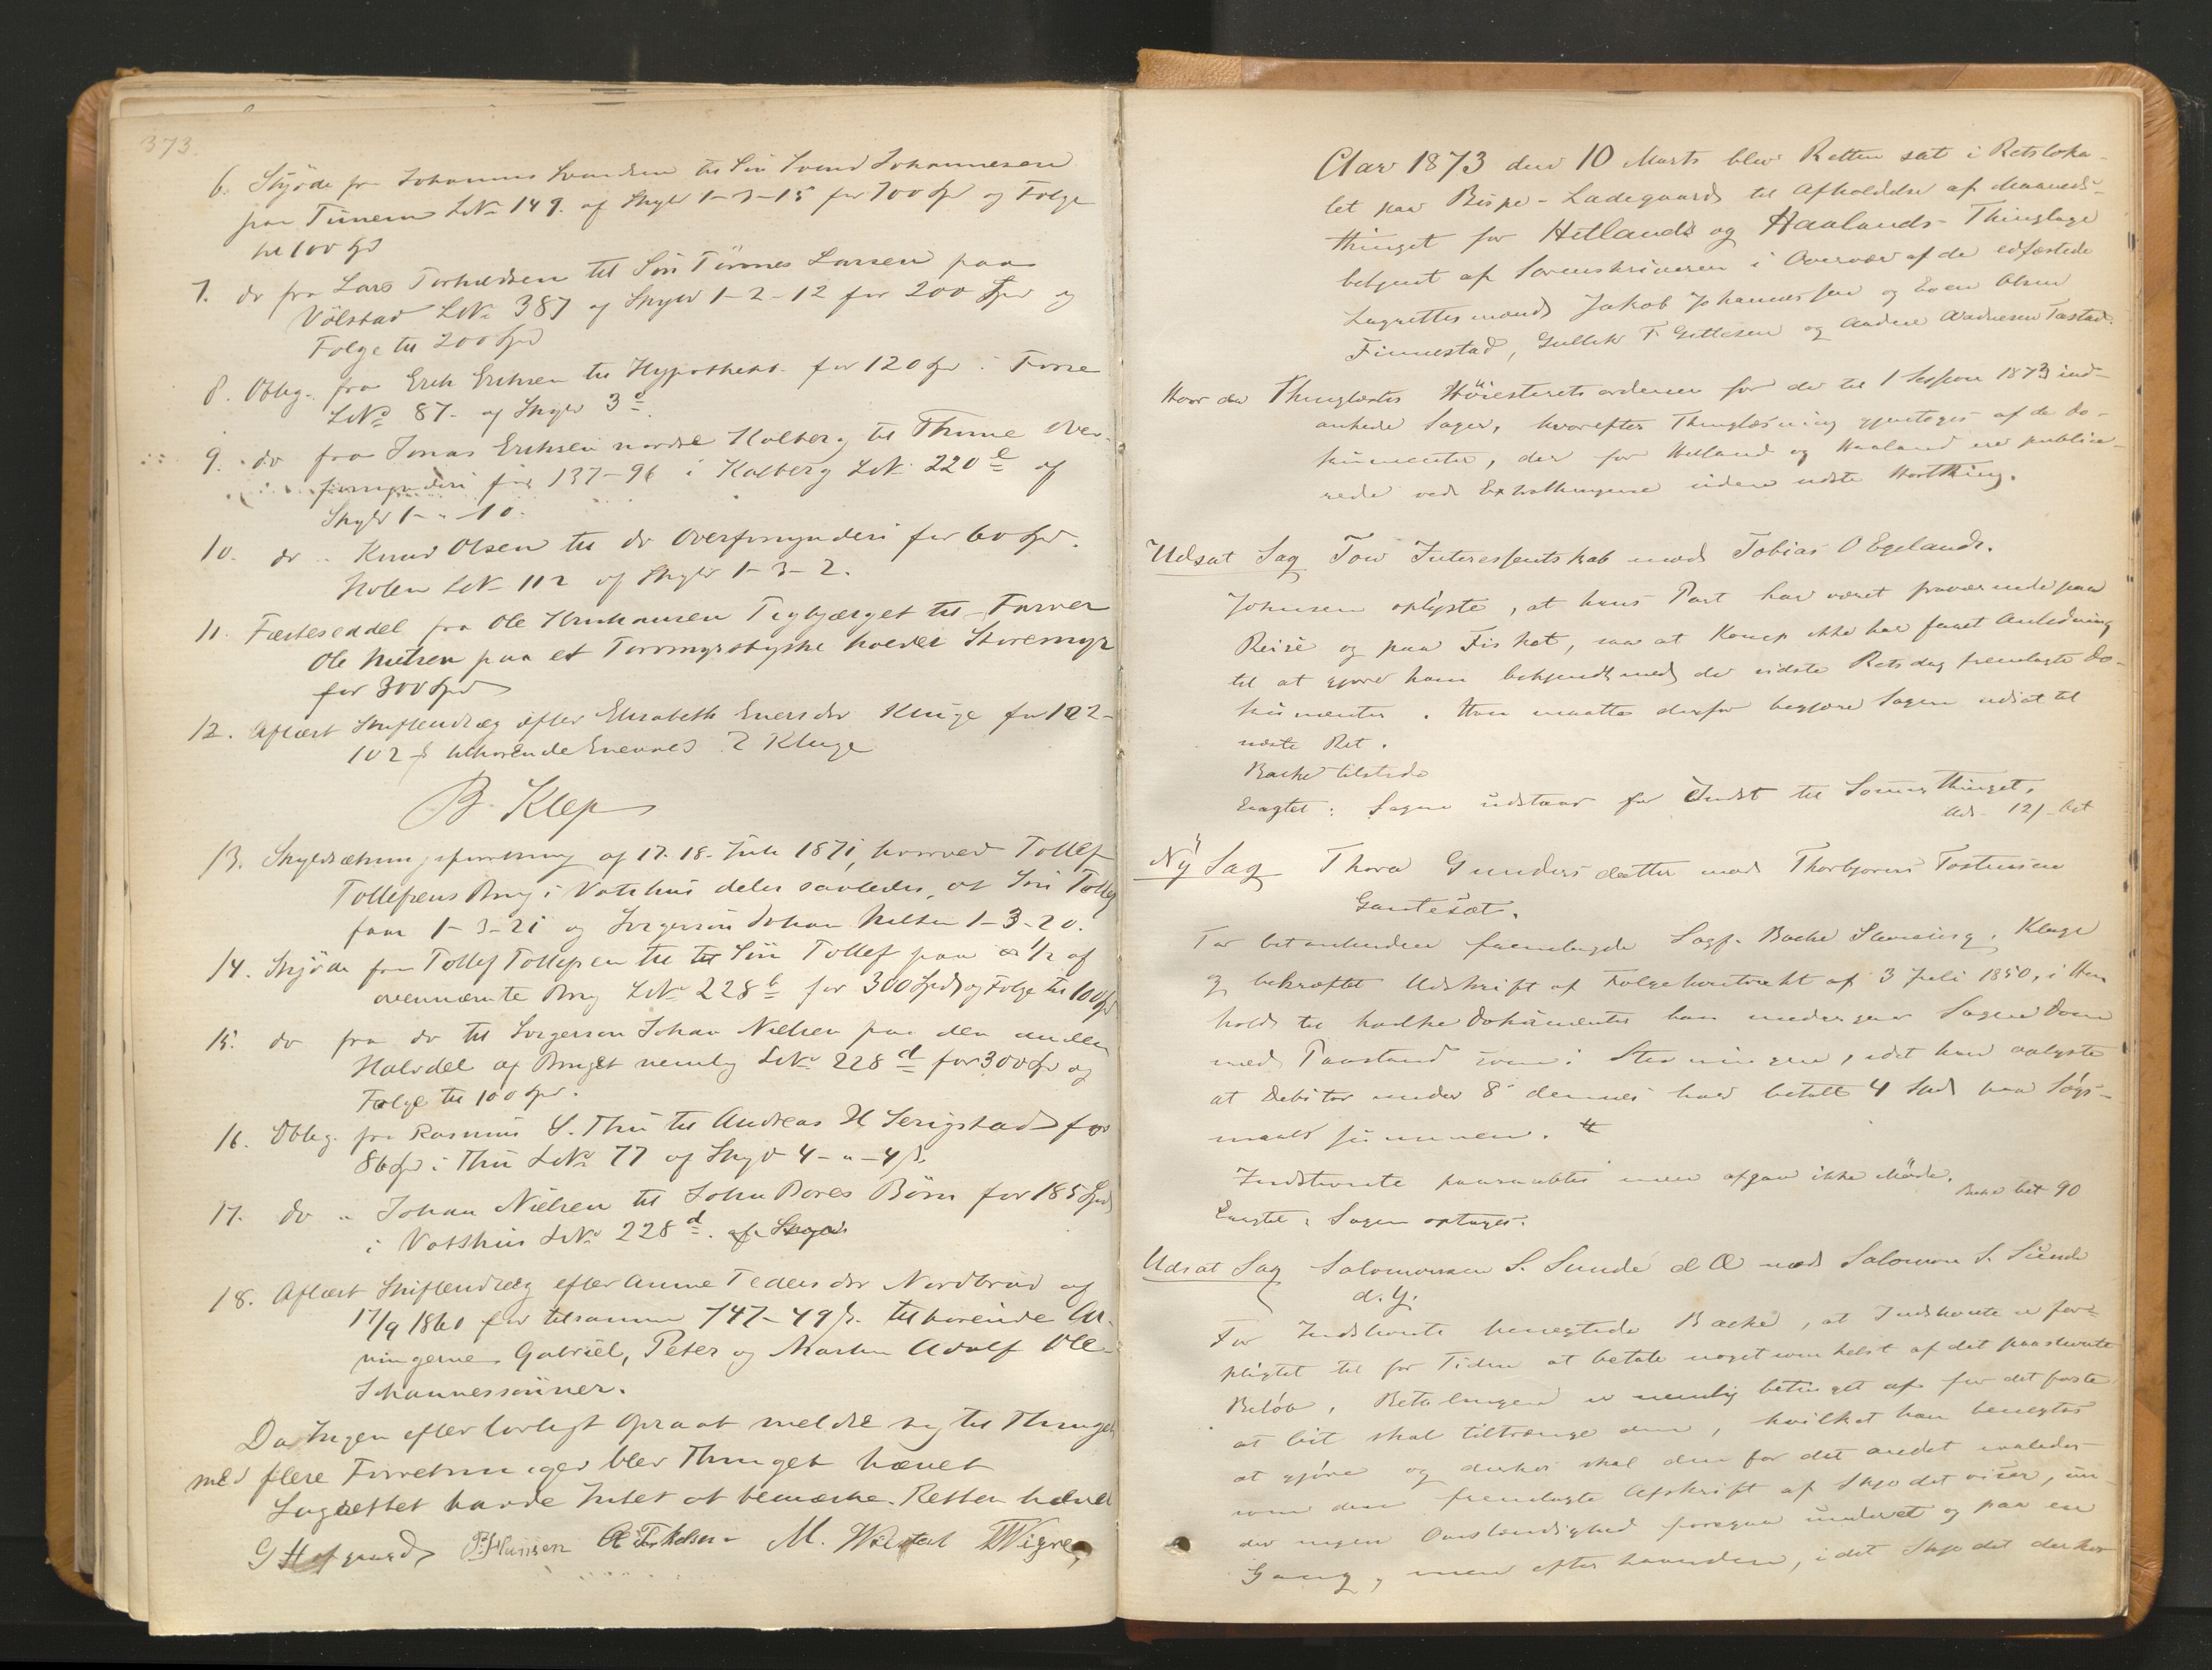 373.
6. Skjöde fra Johannes Svendsen til Sön Svend Johannesen
paa Tunem LNo 149. af Skyld 1-3-15 for 700 Spd og Folge
til 100 Spd
7. do fra Lars Torkildsen til Sön Tönnes Larsen paa
Völstad LNo 387 af Skyld 1-2-12 for 200 Spd og
Folge til 200 Spd
8. Oblig. fra Erik Eriksen til Hypothekb. for 120 Spd i
LNo 87- af Skyld 3
9. do fra Jonas Eriksen nordre Kalberg til Thime Over-
formynderi for 137-96 i Kalberg LNo 220 af
Skyld 1 - " - 10.
10. do " Knud Olsen til do Overformynderi for 60 Spd.
Holen LNo 112 af Skyld 1-3-2.
11. Fæsteseddel fra Ole Tegbjærget til Farver
Ole Nielsen paa et Torvmyrstykke kaldet Storemyr
for 300 Spd
12. Aflæst Skifteudlæg efter Elisabeth Enersdr Kluge for 102-
102 ß tilhörende Kluge
B. Klep
13. Skyldsætningsforretning af 17-18- Juli 1871, hvorved Tollef
Tollefsens Brug i Vatshus deles saaledes, at Sön Tollef
faar 1-3-21 og Svigersön Johan Nilsen 1-3-20.
14. Skjöde fra Tollef Tollefsen til Sön Tollef paa 1/2 af
ovennævnte Brug LNo 228 b for 300 Spd og Folge til 100 Spd
15. do fra do til Svigersön Johan Nielsen paa den anden
Halvdel af Bruget nemlig LNo 228 d for 300 Spd og
Folge til 100 Spd.
16. Oblig. fra Rasmus S. Thu til Andreas H Serigstad for
86 Spd i Thu LNo 77 af Skyld 4 - " - 4 ß.
17. do " Johan Nielsen til John Bores Börn for 185 Spd
i Vatshus LNo 228 d. af Skyld
18. Aflæst Skifteudlæg efter Anne Tedersdr Nordbraud af
17/9 1860 for tilsammen 747-49 ß. tilhörende Ar-
vingerne Gabriel, Peter og Martin Adolf Ole
Johannessönner.
Da Ingen efter lovligt Opraab meldte sig til Thinget
med flere Forretninger blev Thinget hævet
Lagrettet havde Intet at bemærke. Retten hævet
G Hofgaard P. Hansen M. Wolstad Wigre
Aar 1873 den 10 Marts blev Retten sat i Retsloka-
let paa Bispe-Ladegaard til Afholdelse af Maaneds-
thinget for Hetlands og Haalands-Thinglag
betjent af Sorenskriveren i Overvær af de edfæstede
Lagrettesmænd Jakob Johannessen og Even Olsen
Finnestad, Gullik T. Gittesen og Aadne Aadnesen Tastad.
Hvor da Thinglæstes Höiesteretsordenen for de til 1 Session 1873 ind-
ankede Sager, hvorefter Thinglæsning gjentoges af de Do-
kumenter, der for Hetland og Haaland ere publice-
rede ved Extrathingene siden sidste Hostthing.
Udsat Sag Tou Interessentskab mod Tobias O Egelands.
Johnsen oplyste, at hans Part har været fraværende paa
Reise og paa Fisket, saa at Komp ikke har faaet Anledning
til at gjøre ham bekjendt med de sidste Retsdag fremlagte Do-
kumenter. Han maatte derfor begjære Sagen udsat til
næste Ret.
Backe tilstede
Eragtet: Sagen udstaar for Indst til Sommerthinget.
Uds. 12/- Bet
Ny Sag Thora Gundersdatter mod Thorbjørn Tostensen
Gautesæt.
For Citantinden fremlagde Sagf. Backe Stevning, Klage
og bekræftet Udskrift af Folgekontrakt af 3 Juli 1850, i Hen-
hold til hvilke Dokumenter han indgav Sagen Dom
med Paastand som i Stevningen, idet han oplyste
at Debitor under 8 dennes har betalt 4 Spd paa Søgs-
maals summen.
Indstevnte paaraabtes men afgav ikke Möde.
Backe bet 90
Eragtet: Sagen optages.
Udsat Sag Salomonsen S. Sunde d Æ mod Salomon S. Sunde
d. y.
For Indstevnte benegtede Backe, at Indstevnte er for-
pligtet til for Tiden at betale noget som helst af det paastevnte
Belöb, Betalingen er nemlig betinget af for det forste
at Cit skal tiltrænge den, hvilket han benegtes
at gjöre og derhos skal den for det andet saaledes
som den fremlagte Afskrift af Skjödet viser, un-
der ingen Omstændighed foregaa underet og paa en
Gang, men efter haanden, idet Skjödet derhos